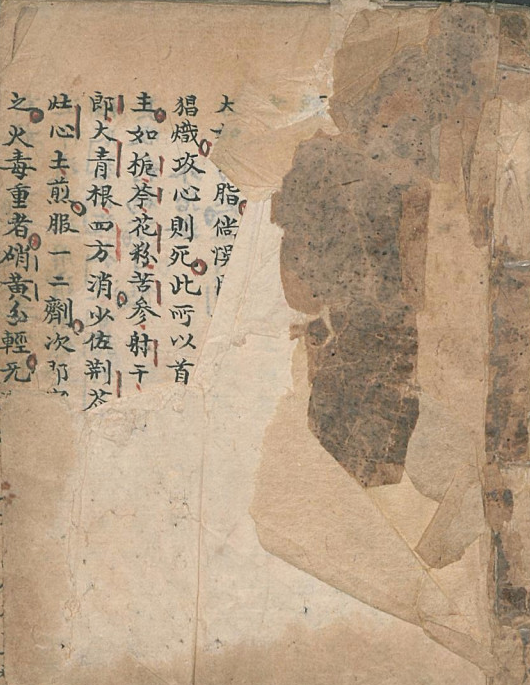 大
脂倘誤
猖熾攻心則死此所以首
主如梔苓花粉苦參射干
郎大青根四方消少佐荆芥
灶心土煎服一二劑次
之火毒重者硝黄輕